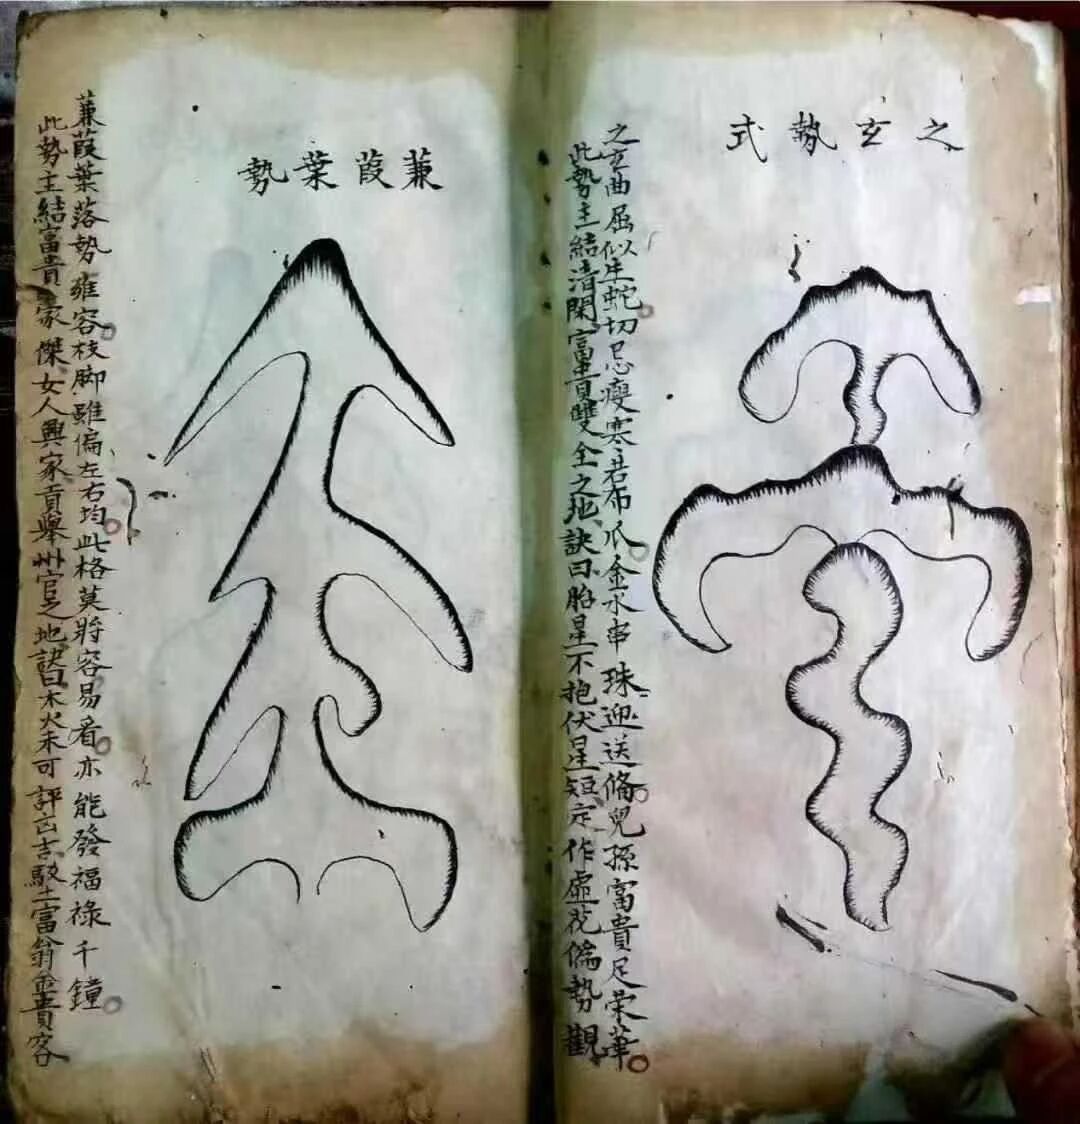 之玄勢式
之玄曲屈似生蛇切忌瘦寒若布爪金水串珠迎送俻兒孫富貴足荣華
此勢主結清閑富貴雙全之地訣曰胎星不抱伏星短定作虛花僞勢觀
蒹葭葉勢
蒹葭葉落勢雍容枝脚雖偏左右均此格莫將容易看亦能發福祿千鐘
此勢主結富貴家傑女人興家貢舉州官之地訣曰木火未可評凶吉富翁並貴客